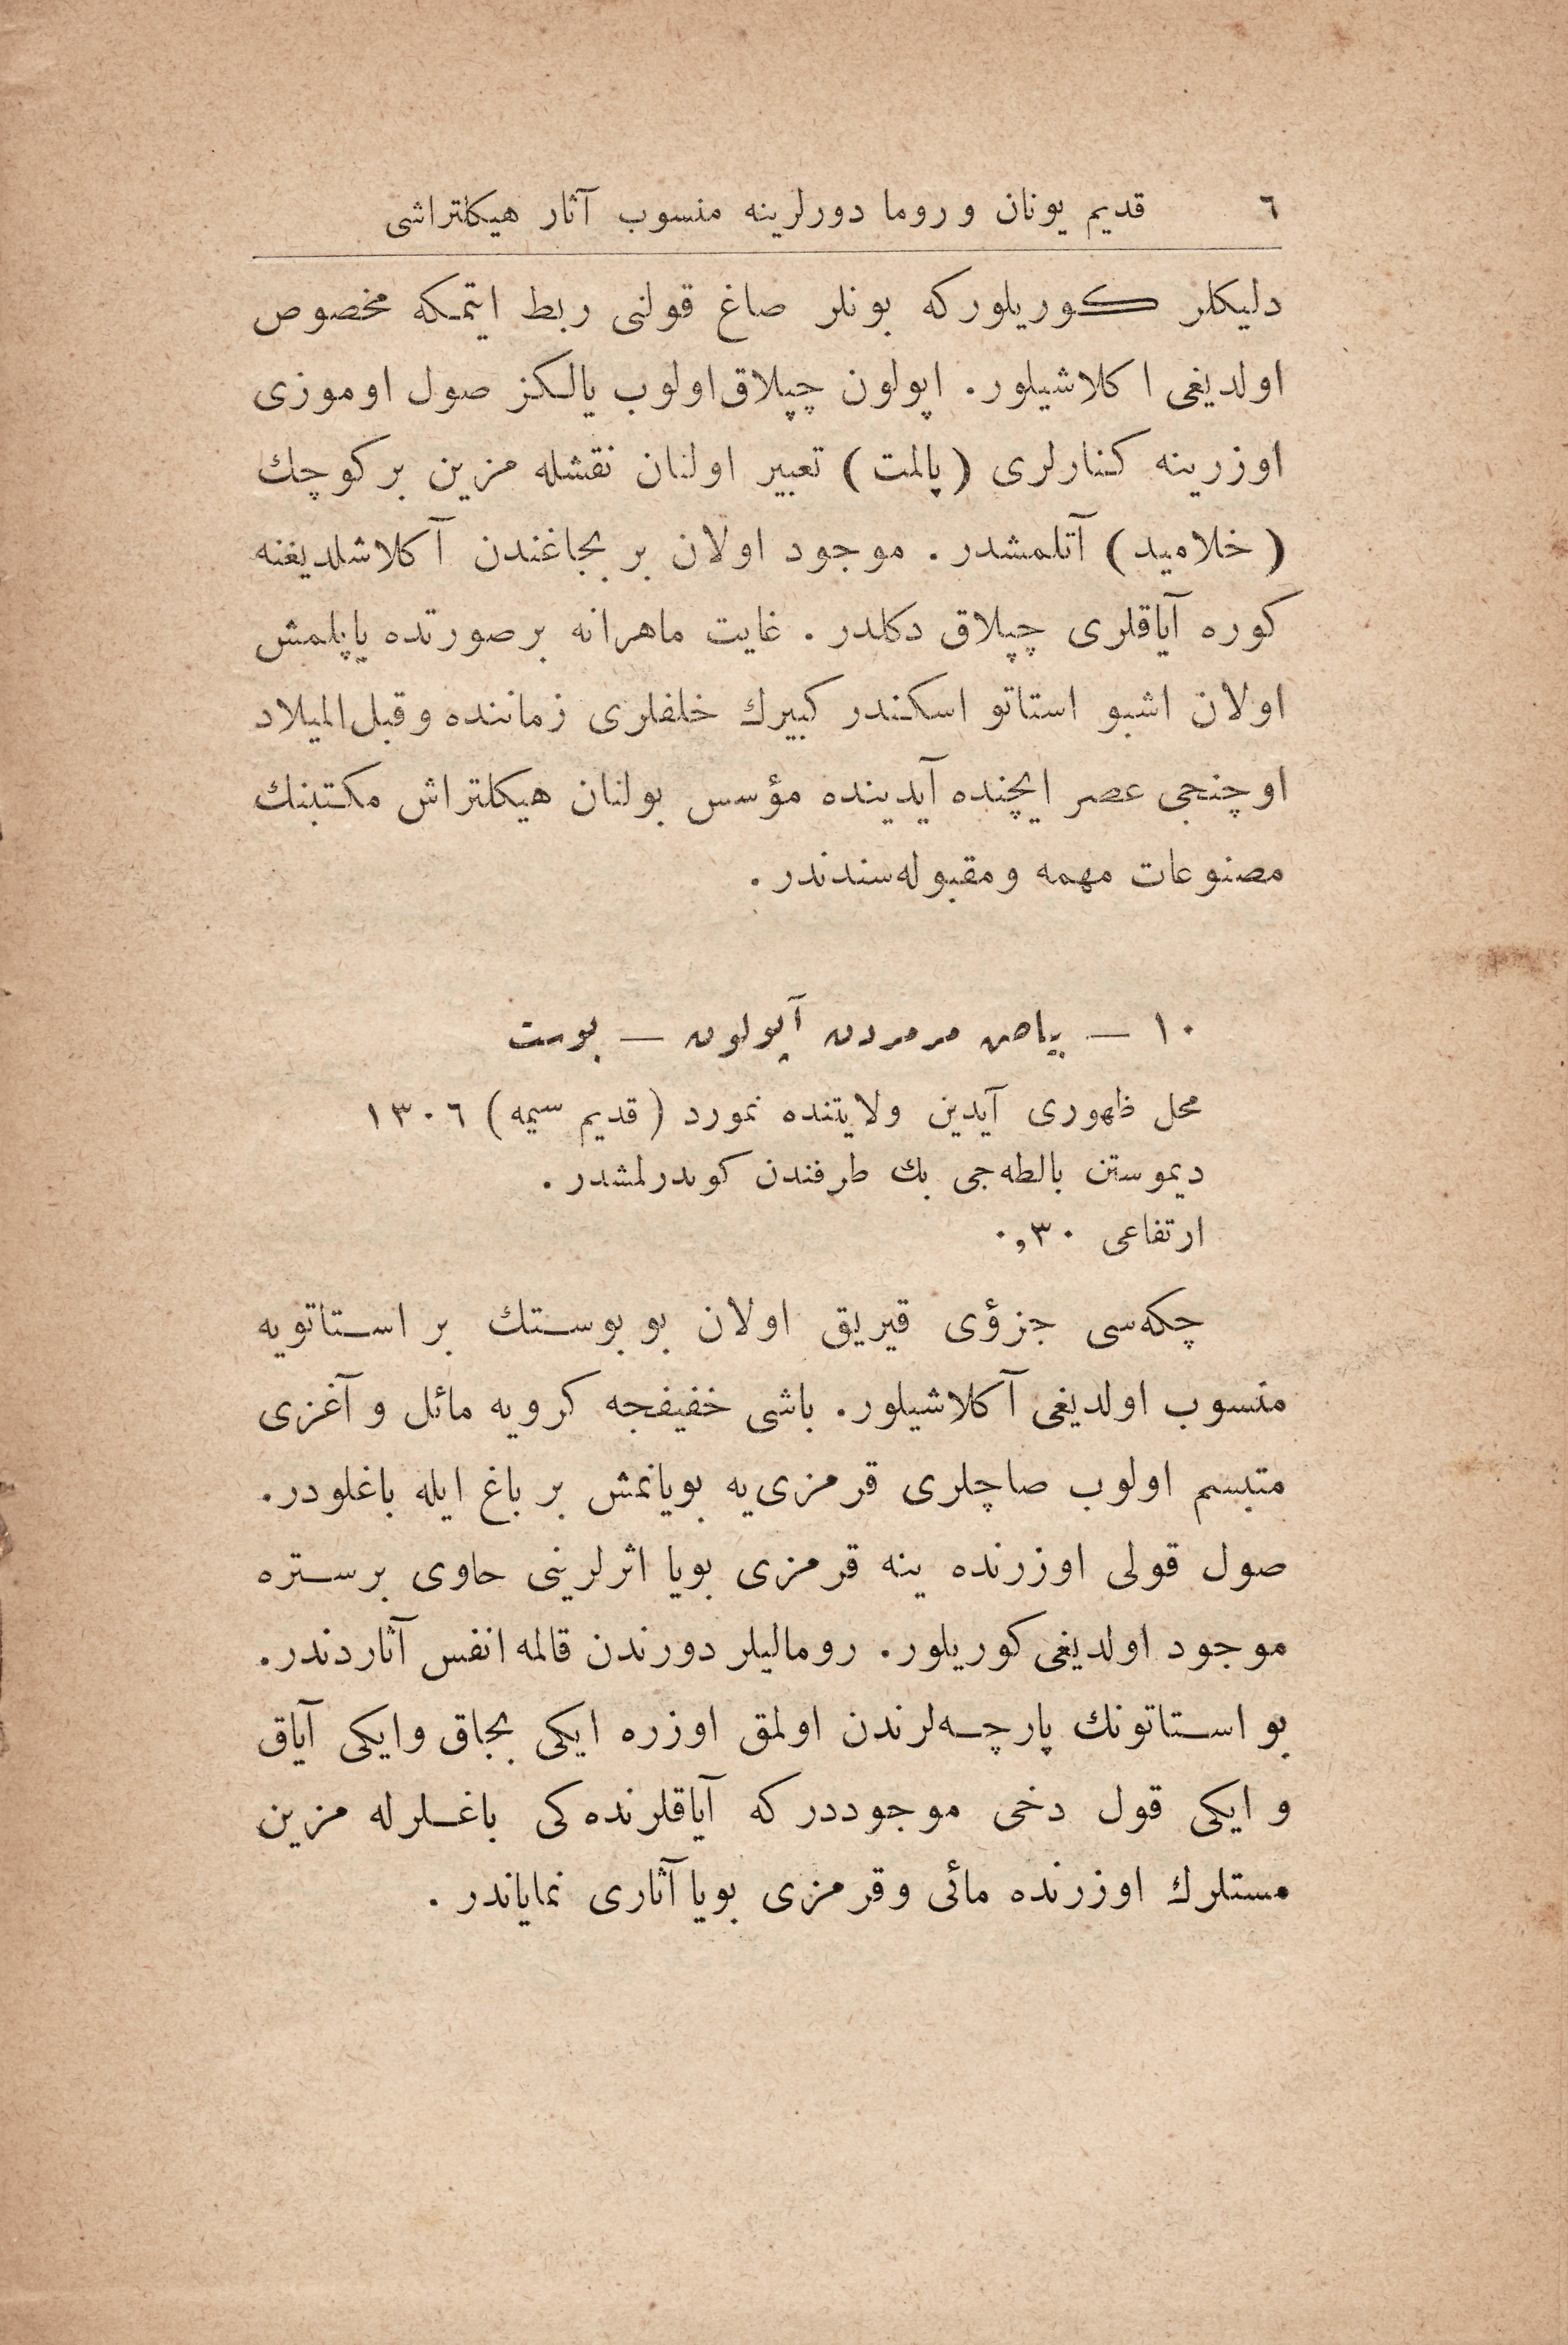 ٦ قديم يونان و روما دورلرينه منسوب آثار هيكلتراشى
دليكلر كوريلوركه بونلر صاغ قولنى ربط ايتمكه مخصوص
اولديغى ا كلاشيلور. اپولون چپلاق اولوب يالكز صول اوموزى
اوزرينه كنارلرى (پالمت) تعبير اولنان نقشله مزين بر كوچك
(خلاميد) آتلمشدر. موجود اولان بر بجاغندن آكلاشلديغنه
كوره آياقلرى چپلاق دكلدر. غايت ماهرانه بر صورتده ياپلمش
اولان اشبو استاتو اسكندر كبيرك خلفلرى زماننده وقبل الميلاد
اوچنجى عصر ايچنده آيدينده مؤسس بولنان هيكلتراش مكتبنك
مصنوعات مهمه ومقبوله‌سندندر.
١٠ — بياض مرمردن آپولون — بوست
محل ظهورى آيدين ولايتنده نمورد (قديم سيمه) ١٣٠٦
ديموستن بالطه‌جى بك طرفندن كوندرلمشدر.
ارتفاعى ٠,٣٠
چكه‌سى جزؤى قيريق اولان بو بوستك بر استاتويه
منسوب اولديغى آكلاشيلور. باشى خفيفجه كرويه مائل و آغزى
متبسم اولوب صاچلرى قرمزى‌يه بويانمش بر باغ ايله باغلودر.
صول قولى اوزرنده ينه قرمزى بويا اثرلرينى حاوى بر ستره
موجود اولديغى كوريلور. روماليلر دورندن قالمه انفس آثاردندر.
بو استاتونك پارچه‌لرندن اولمق اوزره ايكى بجاق وايكى آياق
و ايكى قول دخى موجوددر كه آياقلرنده كى باغلرله مزين
مستلرك اوزرنده مائى وقرمزى بويا آثارى نماياندر.